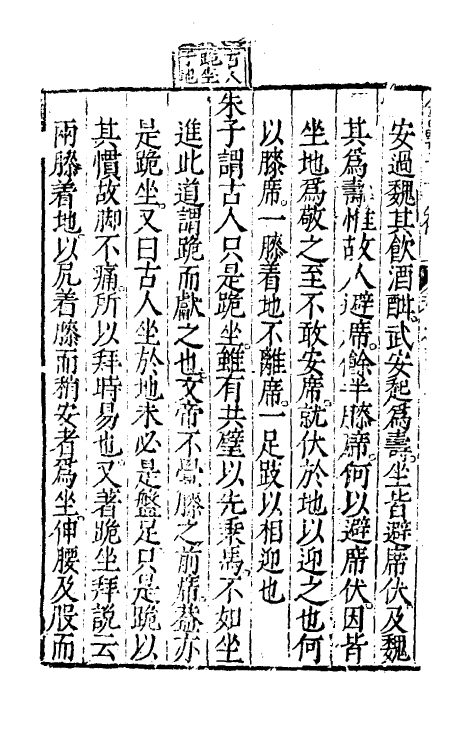 古人
跪坐
于地
安過魏其飲酒酣。武安起爲壽。坐皆避席伏。及魏
其爲壽惟故人避席。餘半膝席。何以避席伏。因皆
坐地爲敬之至不敢安席。就伏於地以迎之也何
以膝席。一膝着地不離席。一足跂以相迎也
朱子謂古人只是跪坐。雖有共璧以先乘馬。不如坐
進此道謂跪而獻之也。文帝不覺膝之前席。葢亦
是跪坐。又曰古人坐於地未必是盤足只是跪以
其慣故脚不痛。所以拜時易也。又著跪坐拜說云
兩膝着地。以尻着膝而稍安者爲坐。伸腰及股而